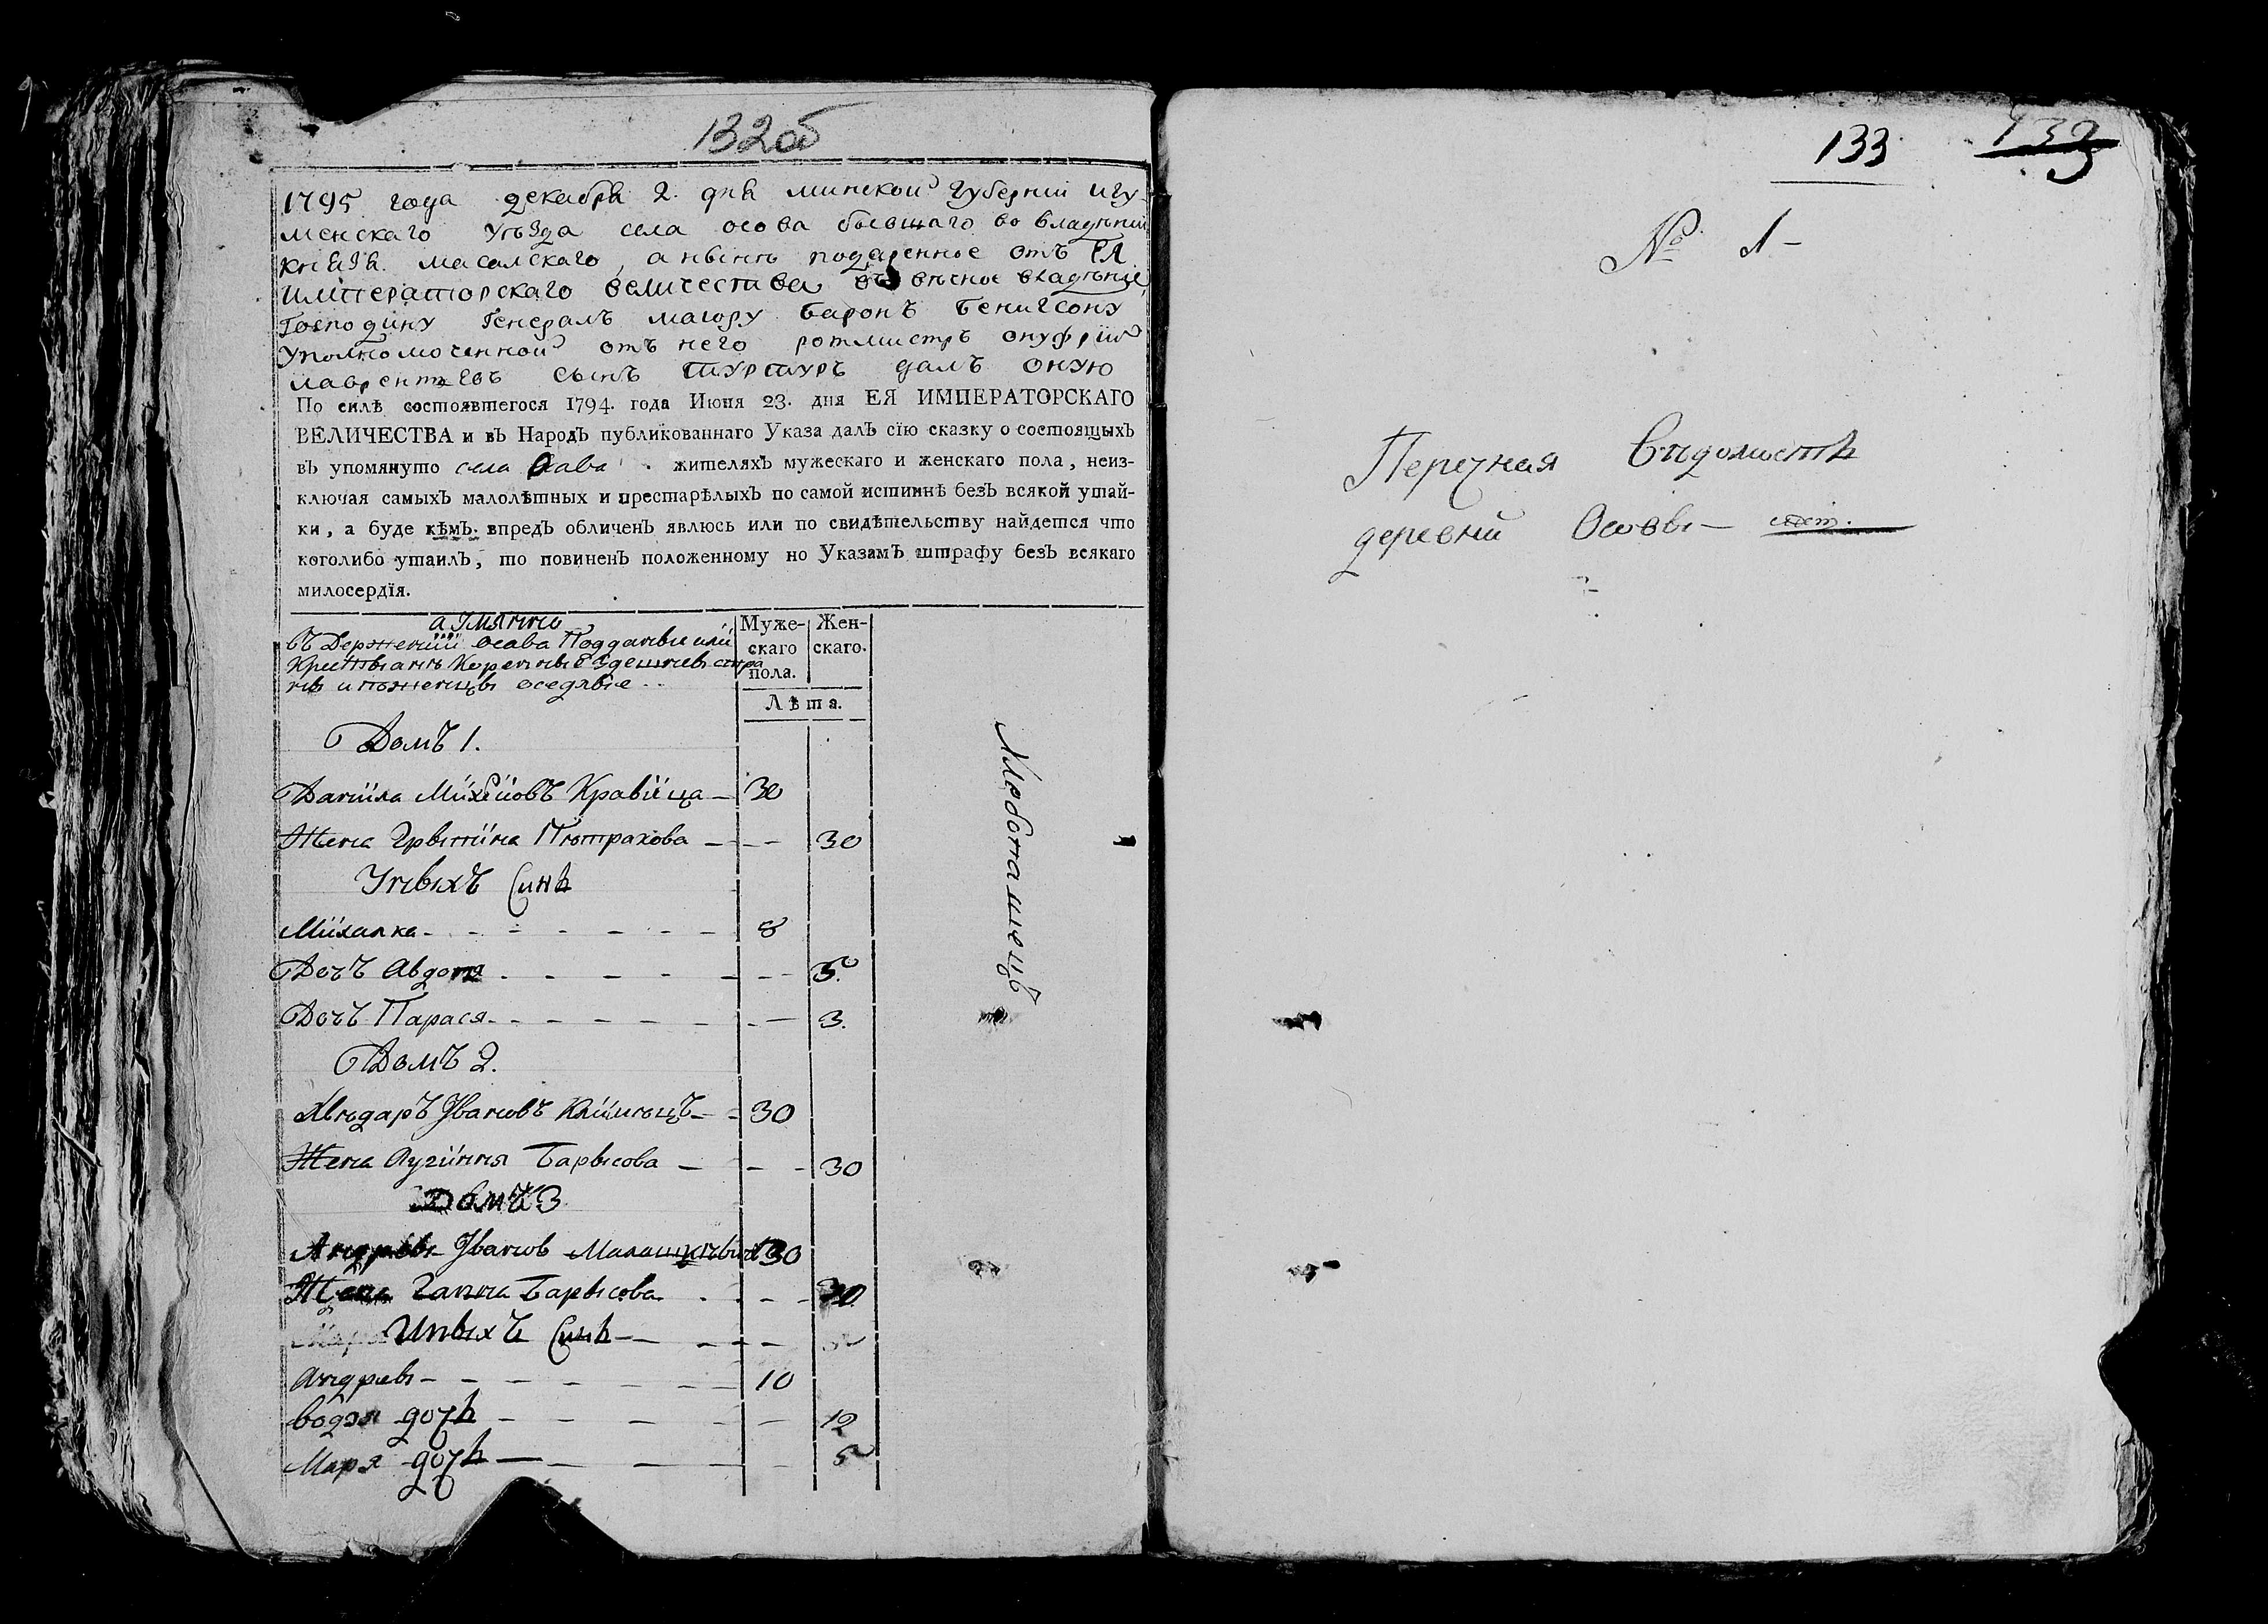 132об
1795 года декабря 2. дня минской губернии игу-
менскаго уѣзда села осова бывшаго во владѣнии
князя масалскаго, а нынѣ подаренное отъ ЕЯ
императорскаго величества въ вѣчное владѣние
Господину Генералъ маиору баронъ бенигсону
уполномоченной отъ него ротмистръ онуфрий
лаврентьевъ сынъ туртуръ далъ оную
По силѣ состоявшегося 1794. года Июня 23. дня ЕЯ ИМПЕРАТОРСКАГО
ВЕЛИЧЕСТВА и въ Народъ публикованнаго Указа далъ сїю сказку о состоящыхъ
въ упомянуто села Осова жителяхъ мужескаго и женскаго пола, неиз-
ключая самыхъ малолѣтных и престарѣлыхъ по самой истиннѣ безъ всякой утай-
ки, а буде кѣмъ впредъ обличенъ явлюсь или по свидѣтельству найдется что
коголибо утаилъ, то повиненъ положенному по Указамъ штрафу безъ всякаго
милосердїя.
а Імянно
въ Держении Осава Подданые или
Крестьянѣ Коренные Здешные
оседлые
Муже-
скаго
пола.
Жен-
скаго.
Лѣта.
Домъ 1.
Данила Михеиовъ Кравица 30
Жена Грыпина Пѣтракова 30
Уных Синъ
Михалка 8
Дочъ Авдотя 5.
Дочъ Парася 3.
Домъ 2.
Хвѣдаръ Івановъ Климѣцъ 30
Жена Лугиння Барысова 30
Домъ 3
Іванов 30
Жена Ганна Барысова 30
Иныхъ Синь
Андреы 10
дочь 12
Маря дочь 5
133 132
№ 1
Перечная Видомость
деревни Осовы